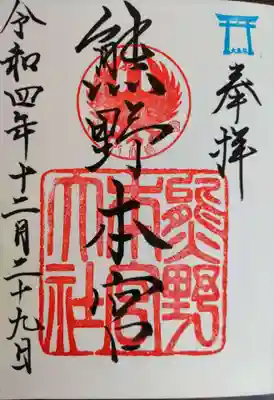 奉拝
熊野本宮
熊野
本宮
大社
令和四年十二月二十九日